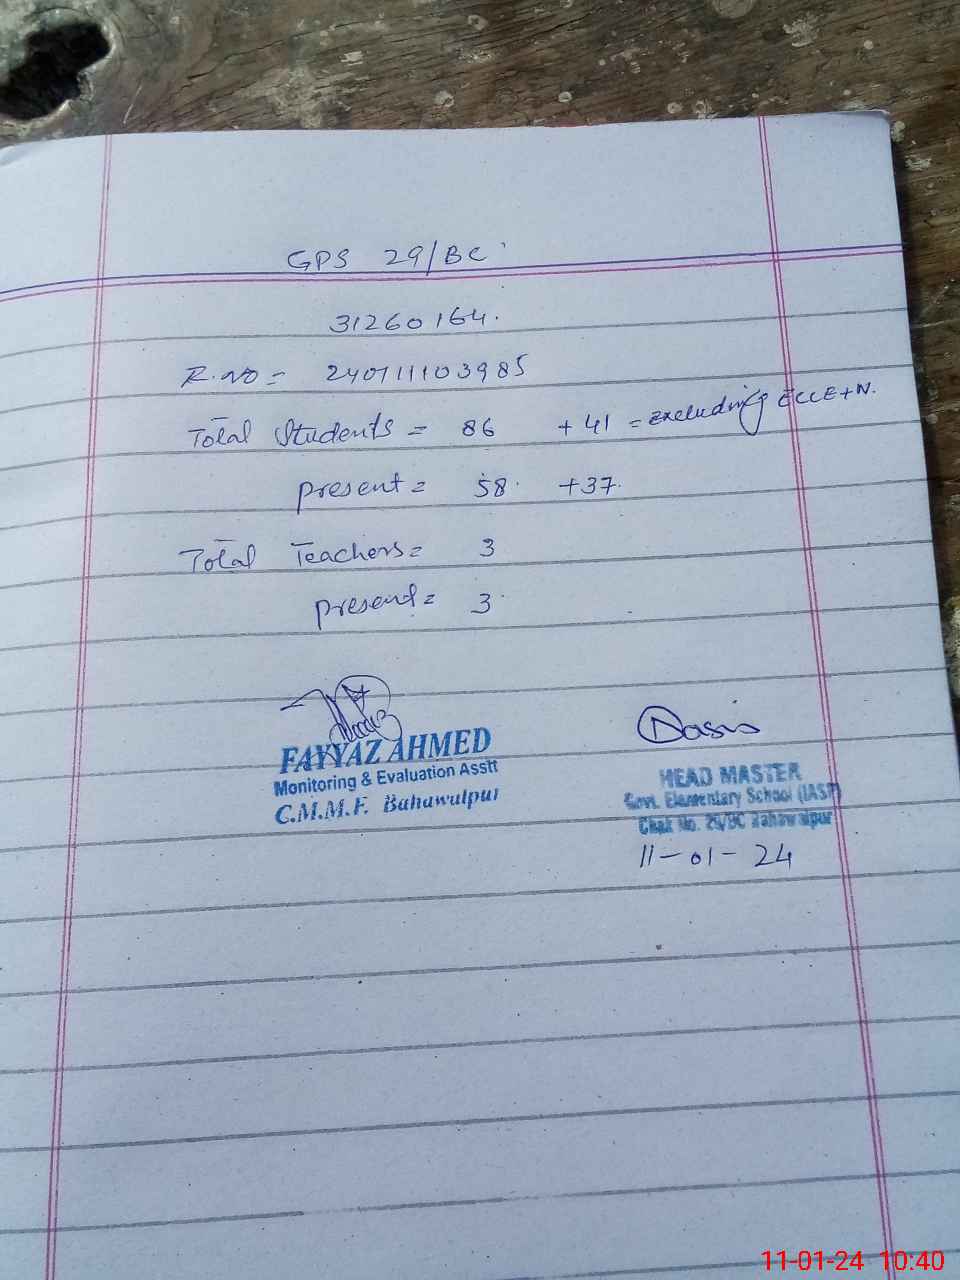 GPS 29/BC
31260164.
R.No = 240111103985
Total Students = 86 +41 = excluding ECCE+N.
present = 58. +37.
Total Teachers = 3
present = 3.
FAYYAZ AHMED
Monitoring & Evaluation Asstt
C.M.M.F. Bahawalpur
HEAD MASTER
Govt. Elementary School (IASP)
Chak No. 29/BC Bahawalpur
11-01-24
11-01-24 10:40